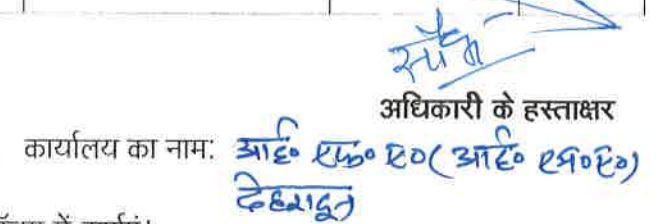 अधिकारी के हस्ताक्षर
कार्यालय का नाम: आई० एफ० ए० ( आई० एन० ए०)
देहरादून